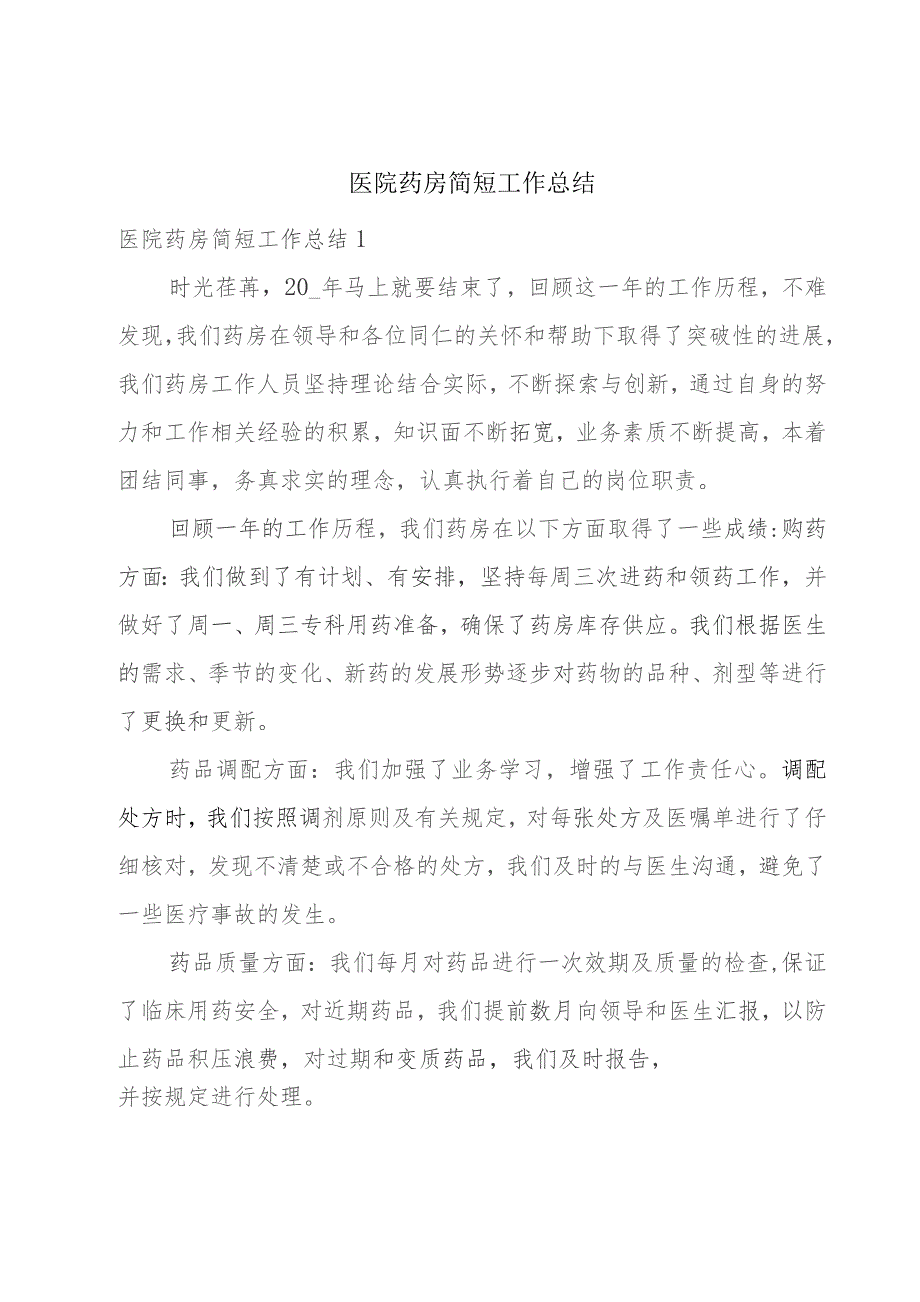 医院药房简短工作总结
医院药房简短工作总结1
时光荏苒，20_年马上就要结束了，回顾这一年的工作历程，不难
发现,我们药房在领导和各位同仁的关怀和帮助下取得了突破性的进展,
我们药房工作人员坚持理论结合实际，不断探索与创新，通过自身的努
力和工作相关经验的积累，知识面不断拓宽，业务素质不断提高，本着
团结同事，务真求实的理念，认真执行着自己的岗位职责。
回顾一年的工作历程，我们药房在以下方面取得了一些成绩:购药
方面：我们做到了有计划、有安排，坚持每周三次进药和领药工作，并
做好了周一、周三专科用药准备，确保了药房库存供应。我们根据医生
的需求、季节的变化、新药的发展形势逐步对药物的品种、剂型等进行
了更换和更新。
药品调配方面：我们加强了业务学习，增强了工作责任心。调配
处方时，我们按照调剂原则及有关规定，对每张处方及医嘱单进行了仔
细核对，发现不清楚或不合格的处方，我们及时的与医生沟通，避免了
一些医疗事故的发生。
药品质量方面：我们每月对药品进行一次效期及质量的检查,保证
了临床用药安全，对近期药品，我们提前数月向领导和医生汇报，以防
止药品积压浪费，对过期和变质药品，我们及时报告，
并按规定进行处理。